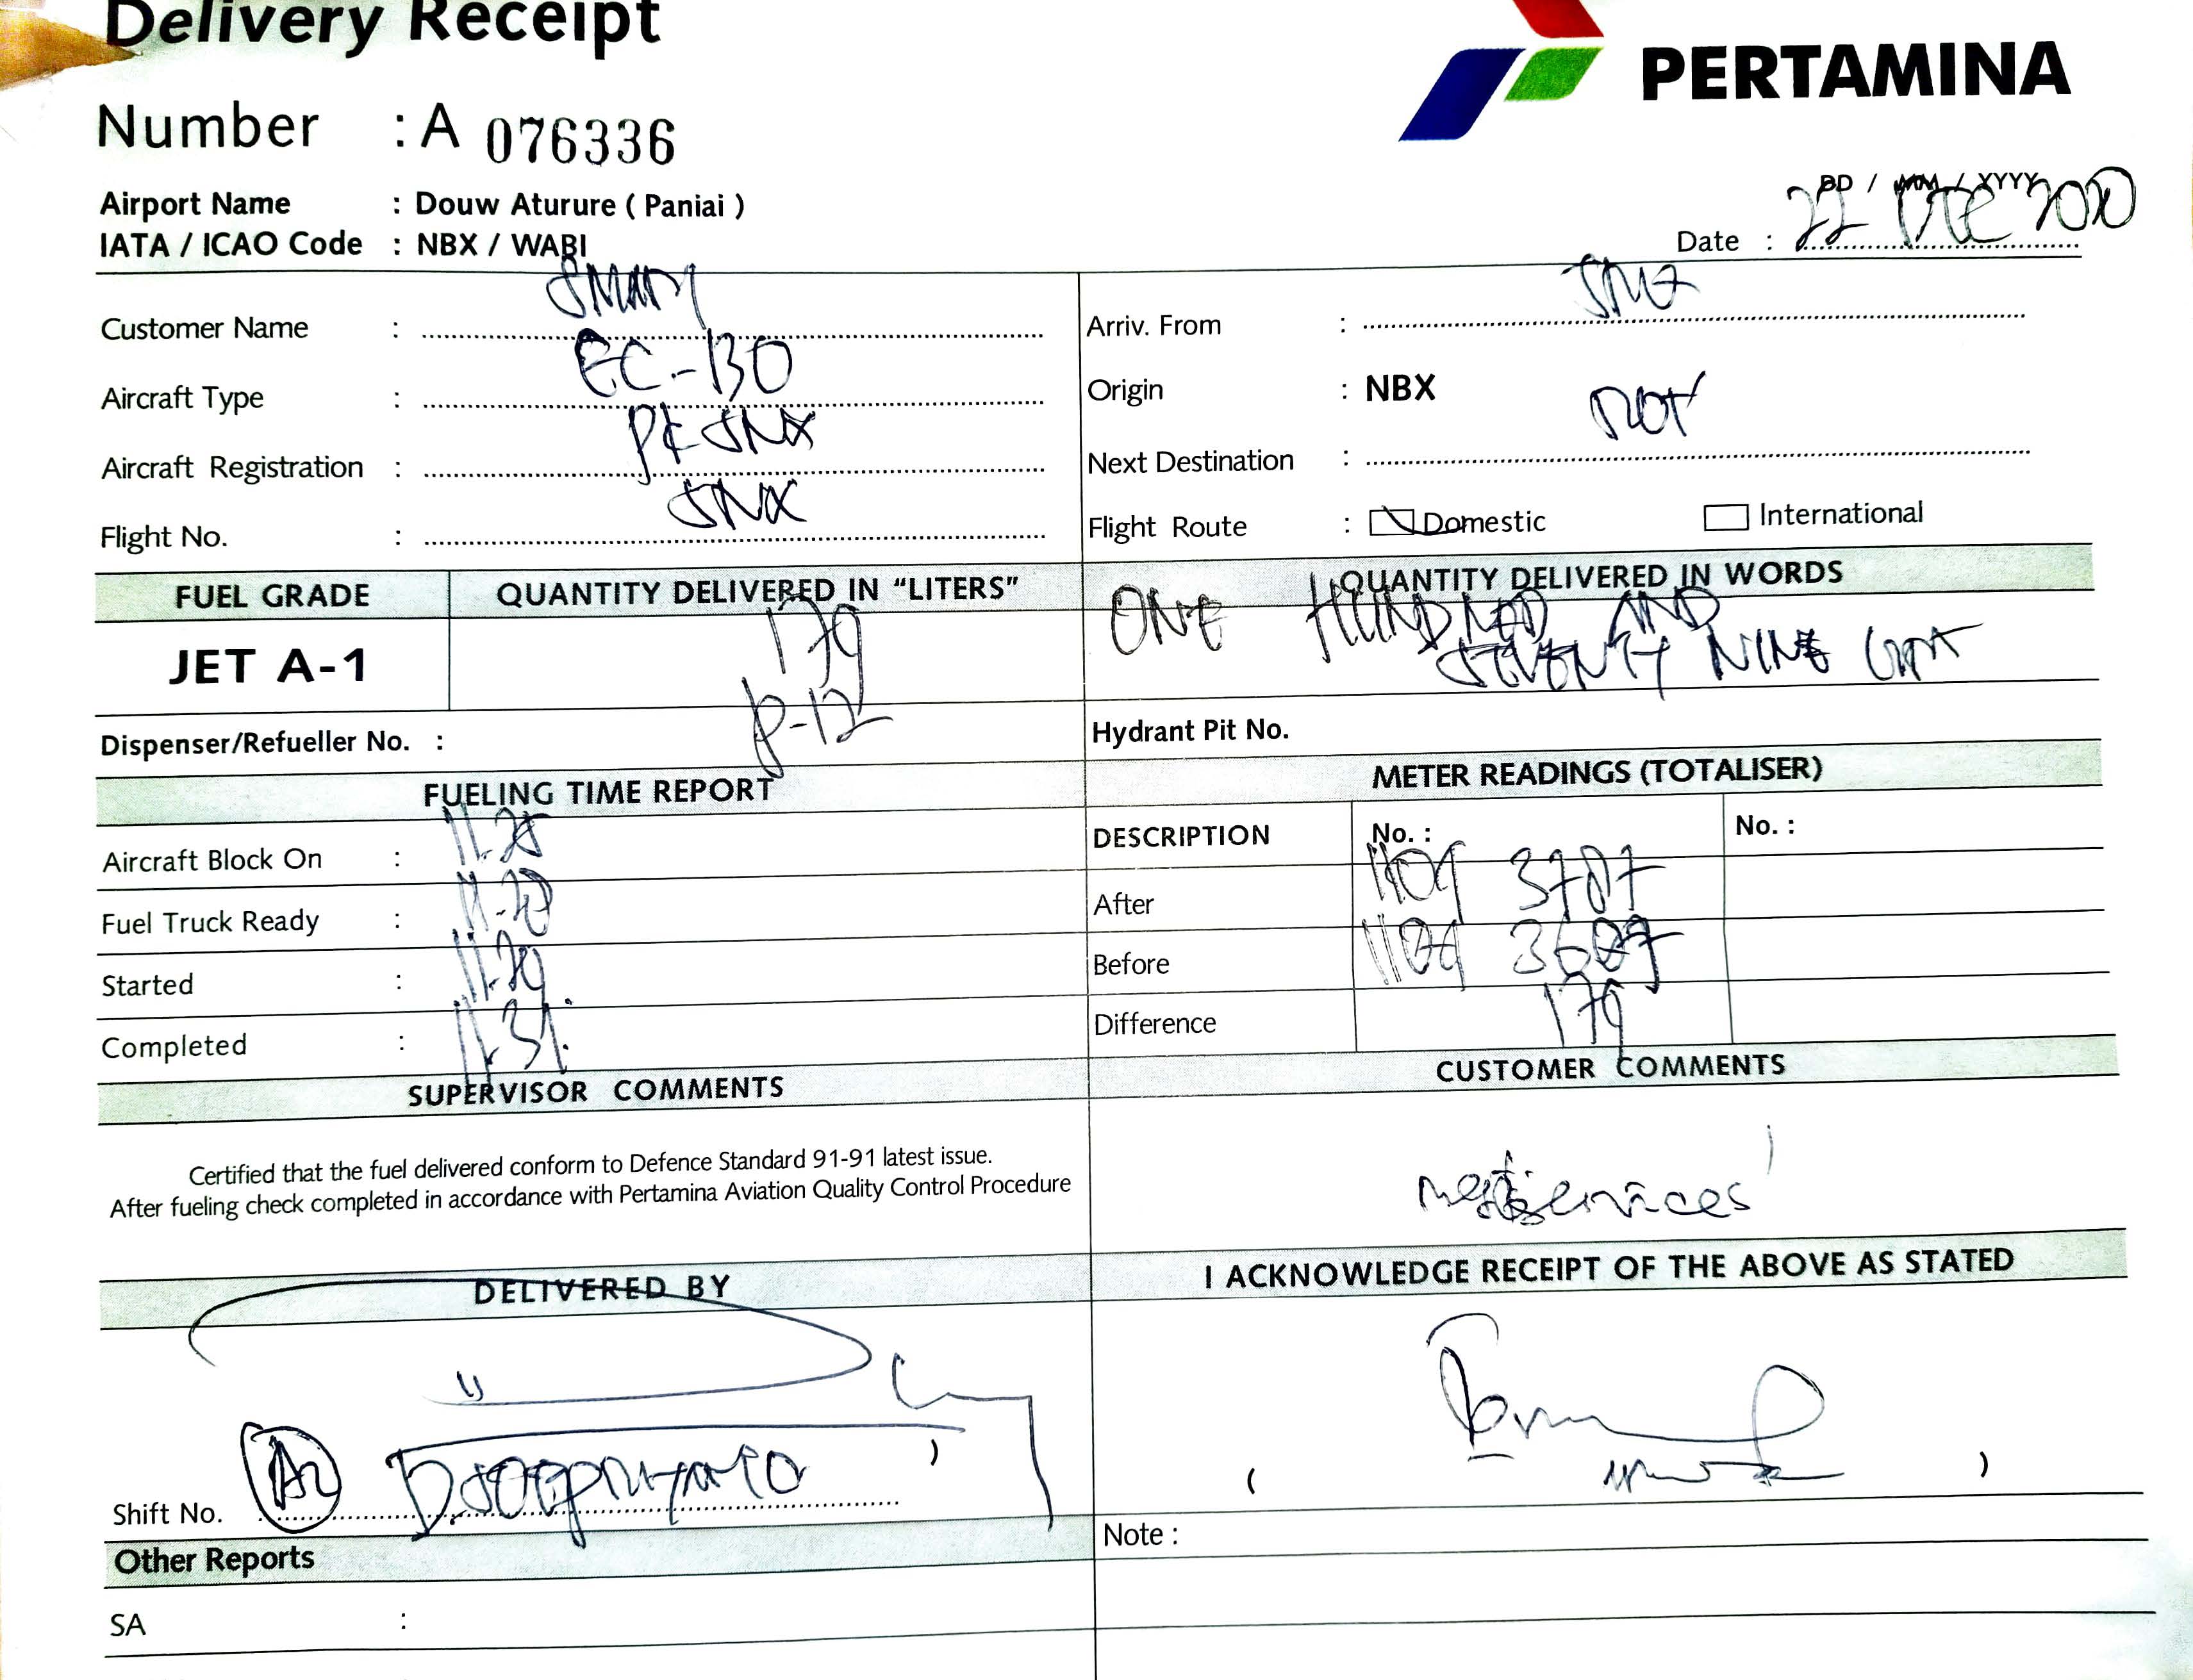 Delivery Receipt
PERTAMINA
Number : A 076336
Airport Name : Douw Aturure ( Paniai )
IATA / ICAO Code : NBX / WABI
DD / MM / YYYY
Date : 22 DEC 2020
Customer Name : SMART
Aircraft Type : EC-130
Aircraft Registration : PK SNX
Flight No. : SNX
Arriv. From :
Origin : NBX
Next Destination :
Flight Route : Domestic International
FUEL GRADE QUANTITY DELIVERED IN "LITERS" QUANTITY DELIVERED IN WORDS
JET A-1 179 ONE HUNDRED AND
SEVENTY NINE
Dispenser/Refueller No. : P-12 Hydrant Pit No.
FUELING TIME REPORT METER READINGS (TOTALISER)
DESCRIPTION No. : No. :
Aircraft Block On : 11.25
Fuel Truck Ready :
Started : 11.29
Completed : 11.31.
After 1109 3787
Before 1109
Difference 179
SUPERVISOR COMMENTS CUSTOMER COMMENTS
Certified that the fuel delivered conform to Defence Standard 91-91 latest issue.
After fueling check completed in accordance with Pertamina Aviation Quality Control Procedure
services
DELIVERED BY I ACKNOWLEDGE RECEIPT OF THE ABOVE AS STATED
Shift No. )
( )
Note :
Other Reports
SA :